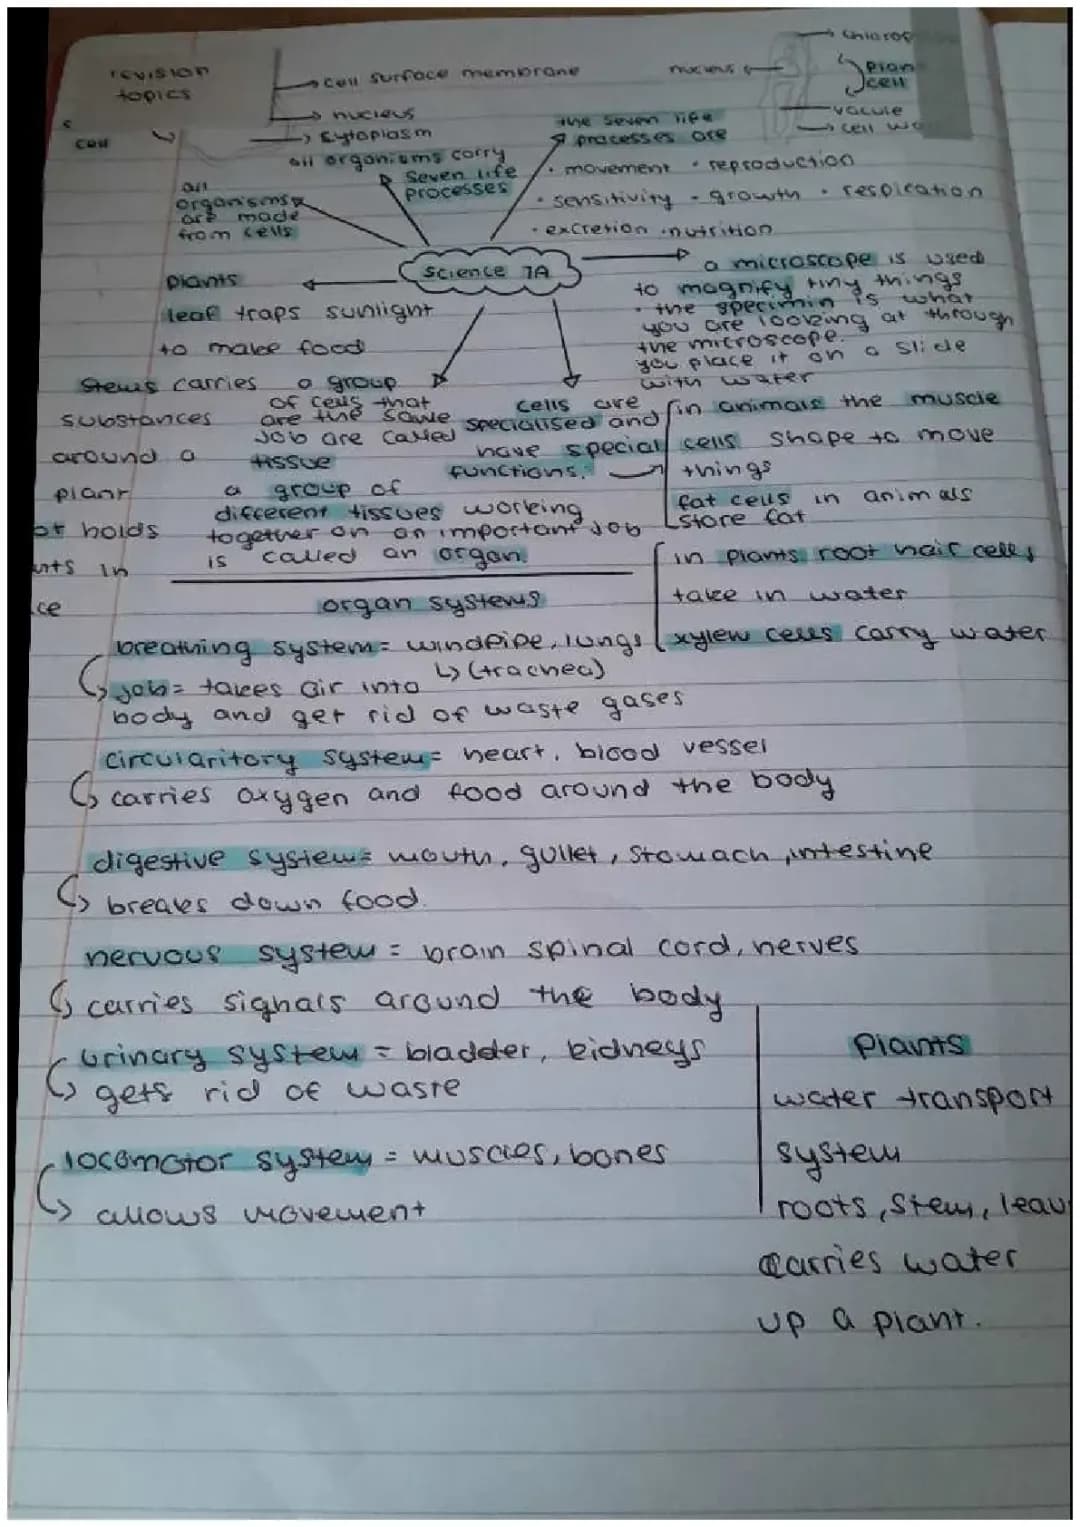 revision
topics
cell surface membrane
nucleus
cytoplasm
cell
nucleus
plan
cell
vacule
cell
all
organisms
are made
from cells
all organisms carry
seven life
processes
the seven life
processes are
· movement · reproduction
· sensitivity · growth · respiration
· excretion · nutrition
Science 7A
a microscope is used
to magnify tiny things
· the specimin is what
you are looking at through
the microscope.
you place it on a slide
with water
plants
leaf traps sunlight
to make food
Stems carries
substances
around a
plant
holds
in
a group
of cells that
are the same
job are called
tissue
a group of
different tissues working
together on an important job
is called an organ.
cells are
specialised and
have special
functions.
in animals the muscle
cells shape to move
things
fat cells in animals
store fat
in plants root hair cells
take in water
xylem cells carry water
organ systems
breathing system = windpipe, lungs
↳ (trachea)
job = takes air into
body and get rid of waste gases
circularitory system = heart, blood vessel
carries oxygen and food around the body
digestive system = mouth, gullet, stomach, intestine
breaks down food.
nervous system = brain spinal cord, nerves
carries signals around the body
urinary system = bladder, kidneys
gets rid of waste
locomotor system = muscles, bones
allows movement
Plants
water transport
system
roots, stem, leav
carries water
up a plant.